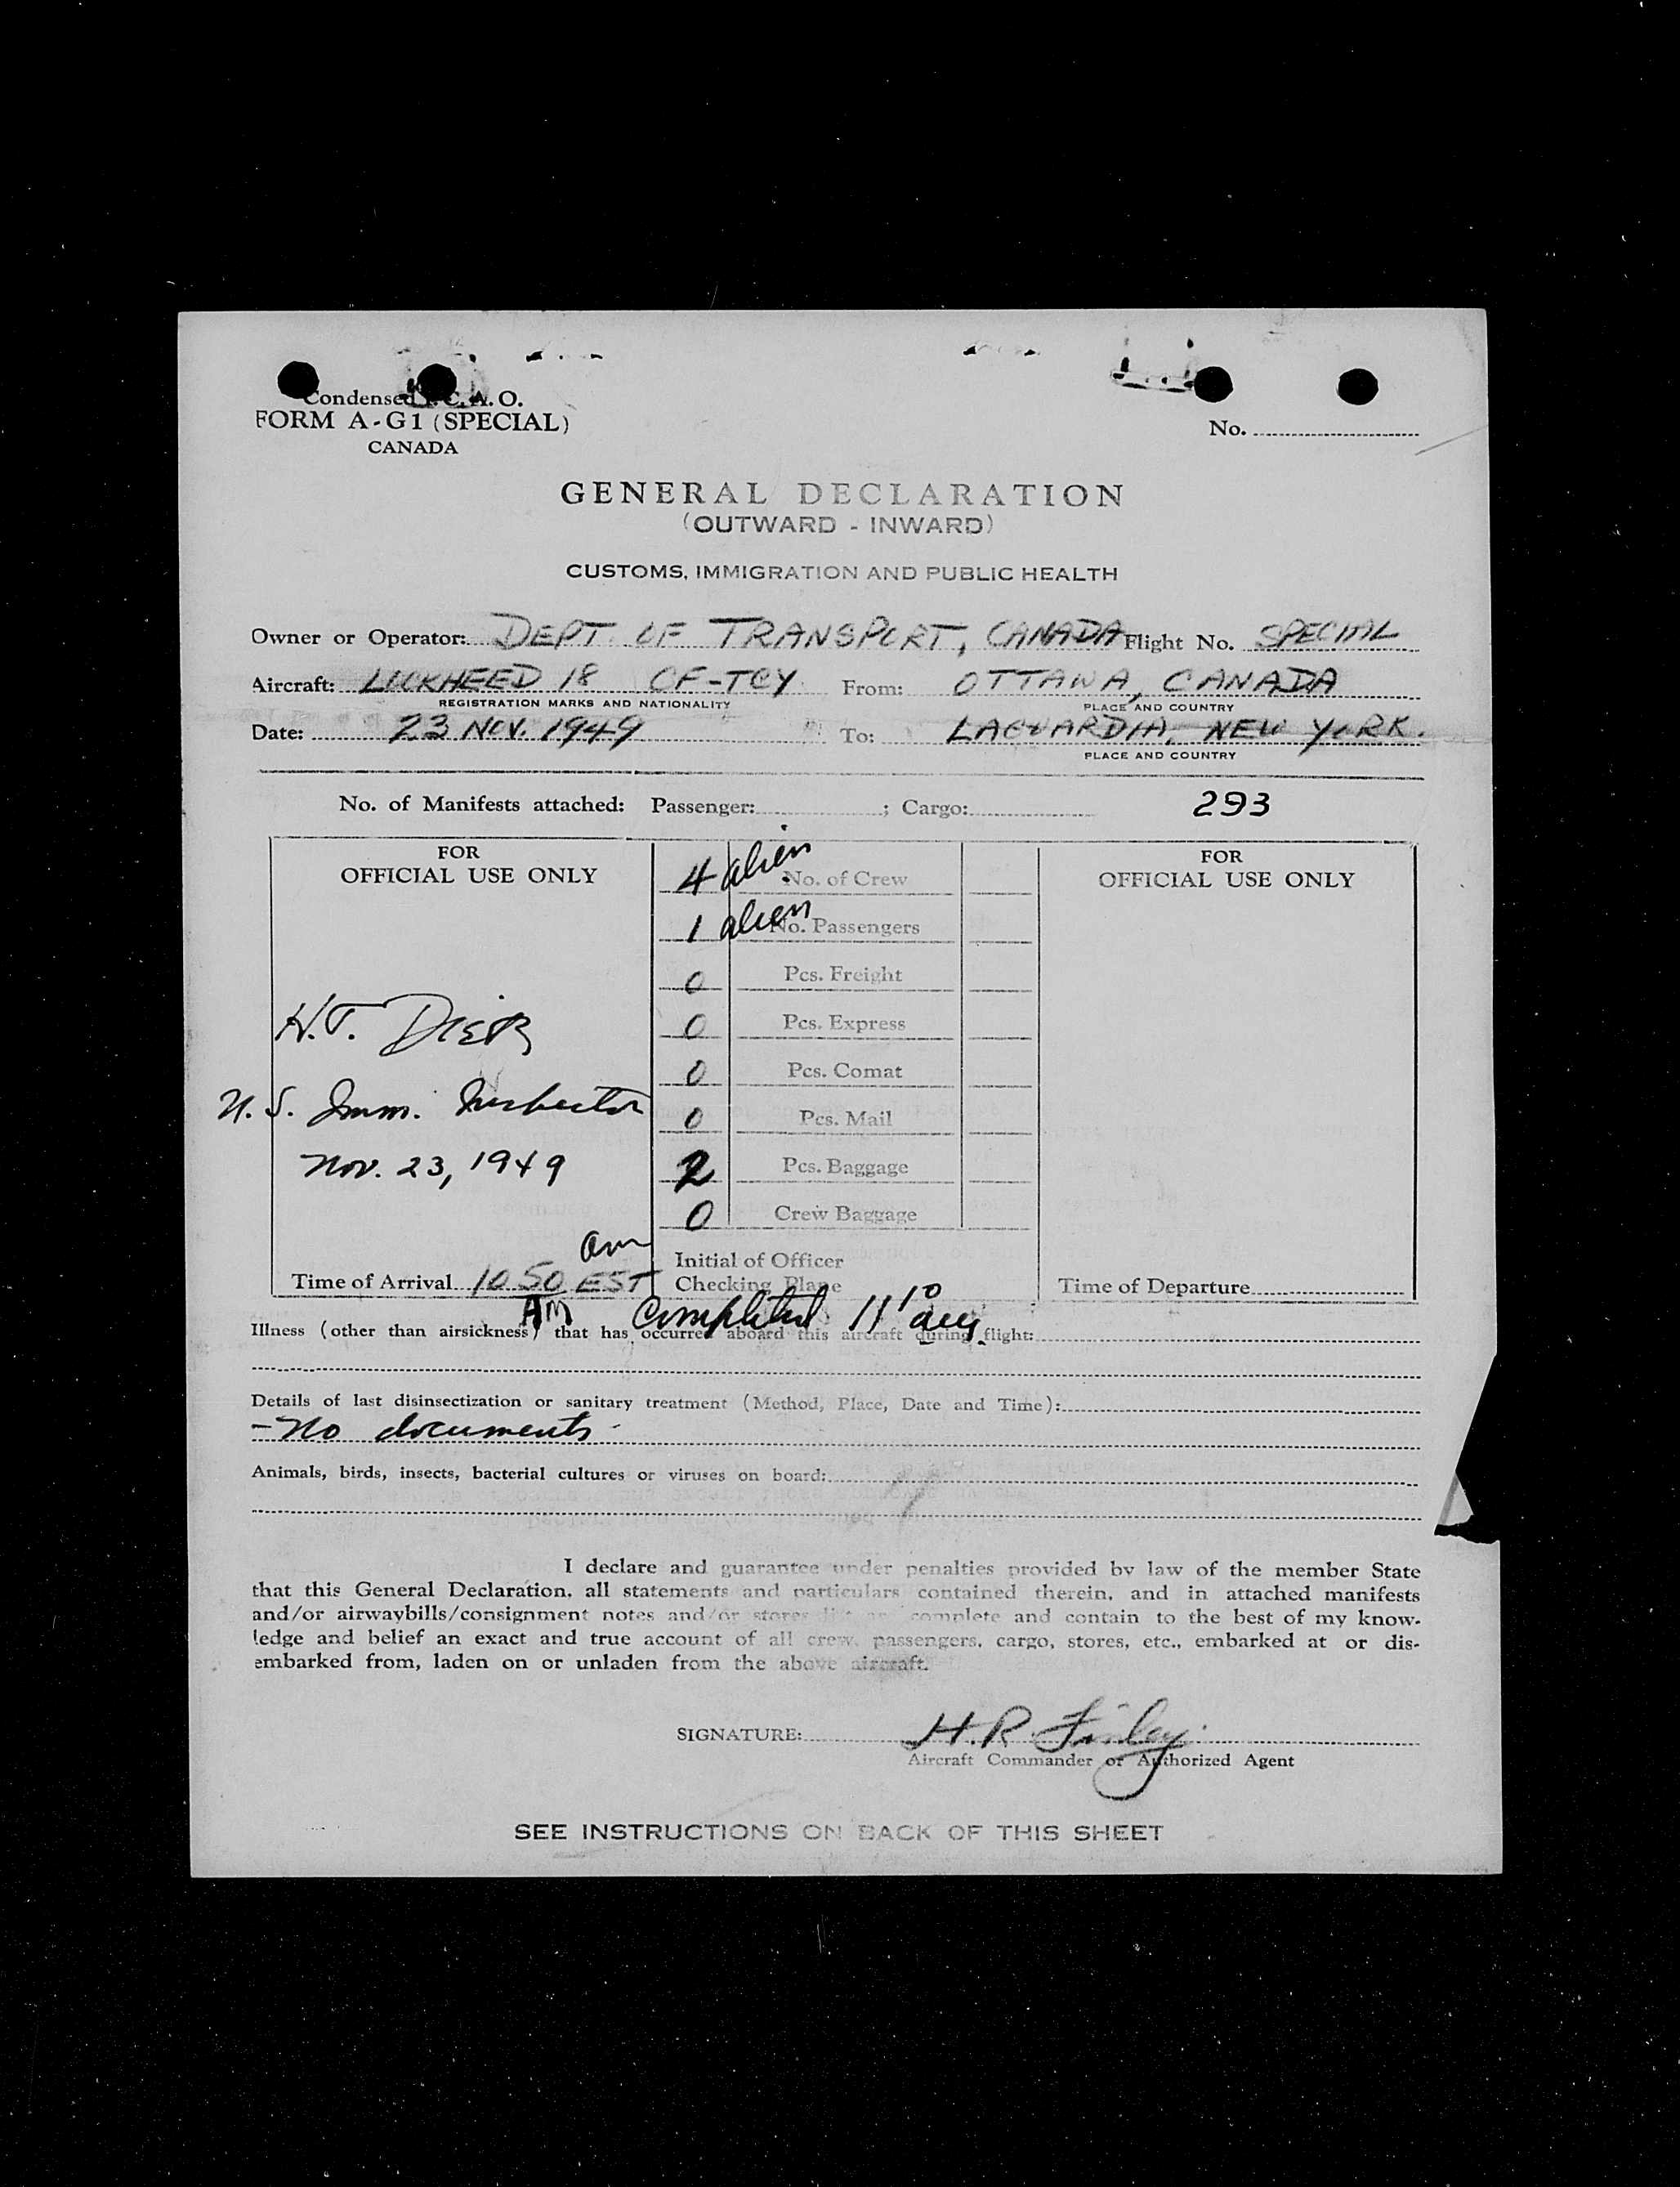 Condensed I.C.A.O.
FORM A-G1 (SPECIAL)
CANADA
No.
GENERAL DECLARATION
(OUTWARD - INWARD)
CUSTOMS, IMMIGRATION AND PUBLIC HEALTH
Owner or Operator: DEPT. OF TRANSPORT, CANADA Flight No. SPECIAL
Aircraft: LOCKHEED 18 CF-TCY From: OTTAWA, CANADA
REGISTRATION MARKS AND NATIONALITY PLACE AND COUNTRY
Date: 23 NOV. 1949 To: LAGUARDIA, NEW YORK.
PLACE AND COUNTRY
No. of Manifests attached: Passenger: ; Cargo: 293
FOR
OFFICIAL USE ONLY
4 alien No. of Crew
1 alien No. Passengers
0 Pcs. Freight
0 Pcs. Express
0 Pcs. Comat
0 Pcs. Mail
2 Pcs. Baggage
0 Crew Baggage
Initial of Officer
Checking Plane
FOR
OFFICIAL USE ONLY
H.J.
U.S. Imm. Inspector
Nov. 23, 1949
am
Time of Arrival 10 50 EST
AM
Completed 11 10
Time of Departure
Illness (other than airsickness) that has occurred aboard this aircraft during flight:
Details of last disinsectization or sanitary treatment (Method, Place, Date and Time):
- No documents -
Animals, birds, insects, bacterial cultures or viruses on board:
I declare and guarantee under penalties provided by law of the member State
that this General Declaration, all statements and particulars contained therein, and in attached manifests
and/or airwaybills/consignment notes and/or stores list are complete and contain to the best of my know-
ledge and belief an exact and true account of all crew, passengers, cargo, stores, etc., embarked at or dis-
embarked from, laden on or unladen from the above aircraft.
SIGNATURE: H.R. Finley
Aircraft Commander or Authorized Agent
SEE INSTRUCTIONS ON BACK OF THIS SHEET